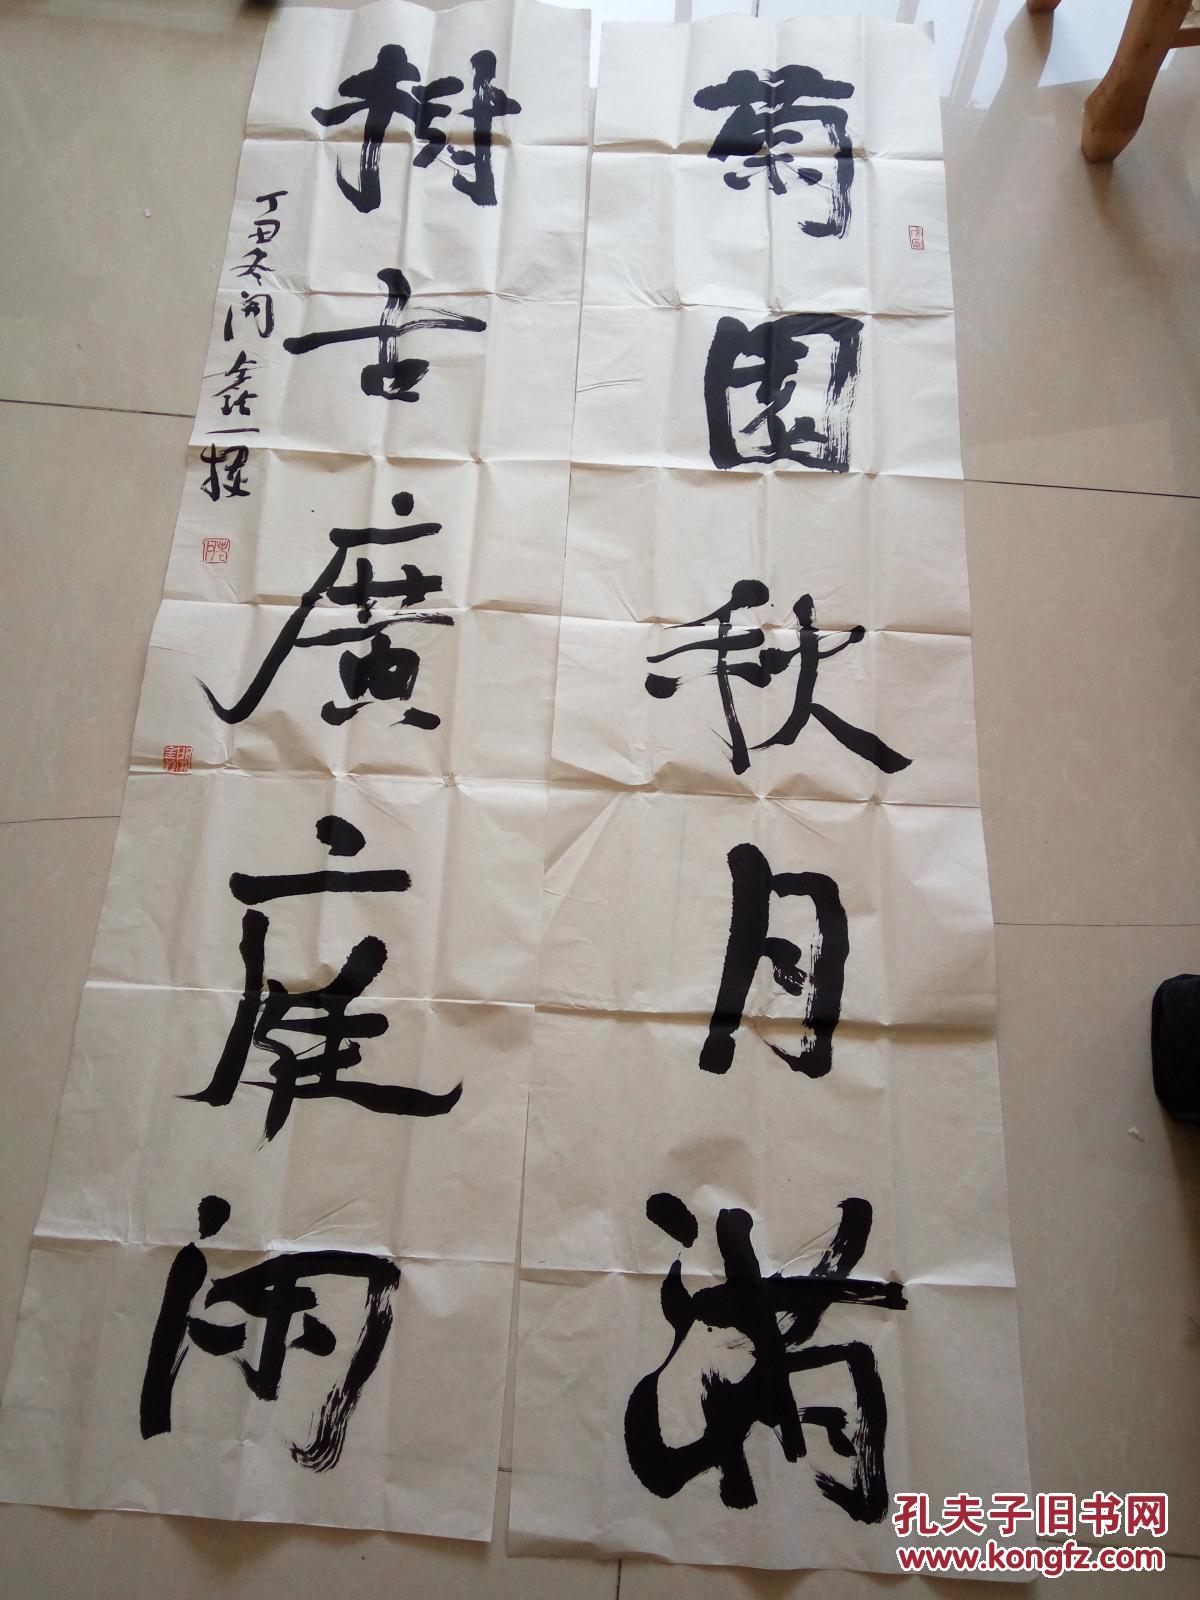 菊園秋月滿
樹古廣庭閑
丁丑冬闲鑫一撰
孔夫子旧书网
www.kongfz.com